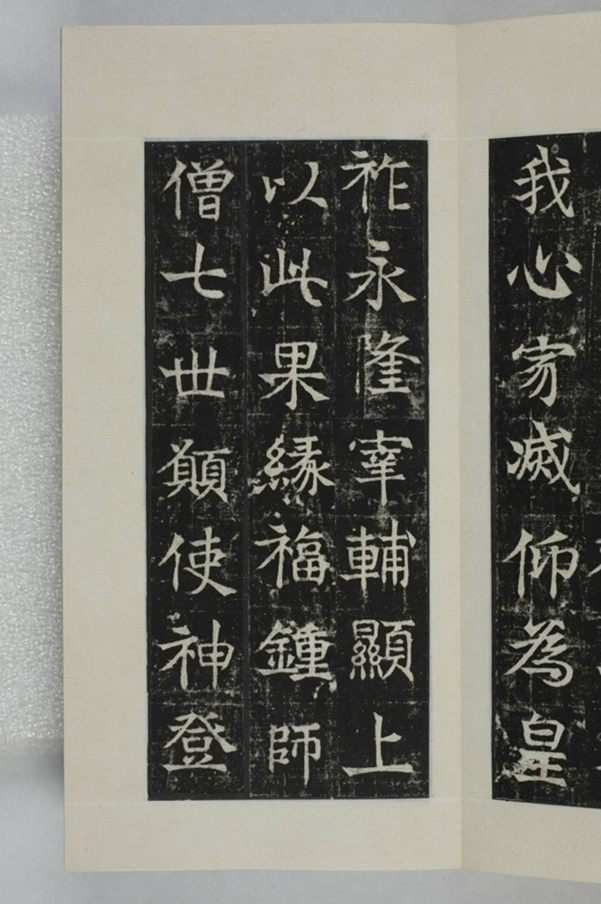 我心家滅仰為皇
祚永隆宰輔顯上
以此果緣福鍾師
僧七世願使神登